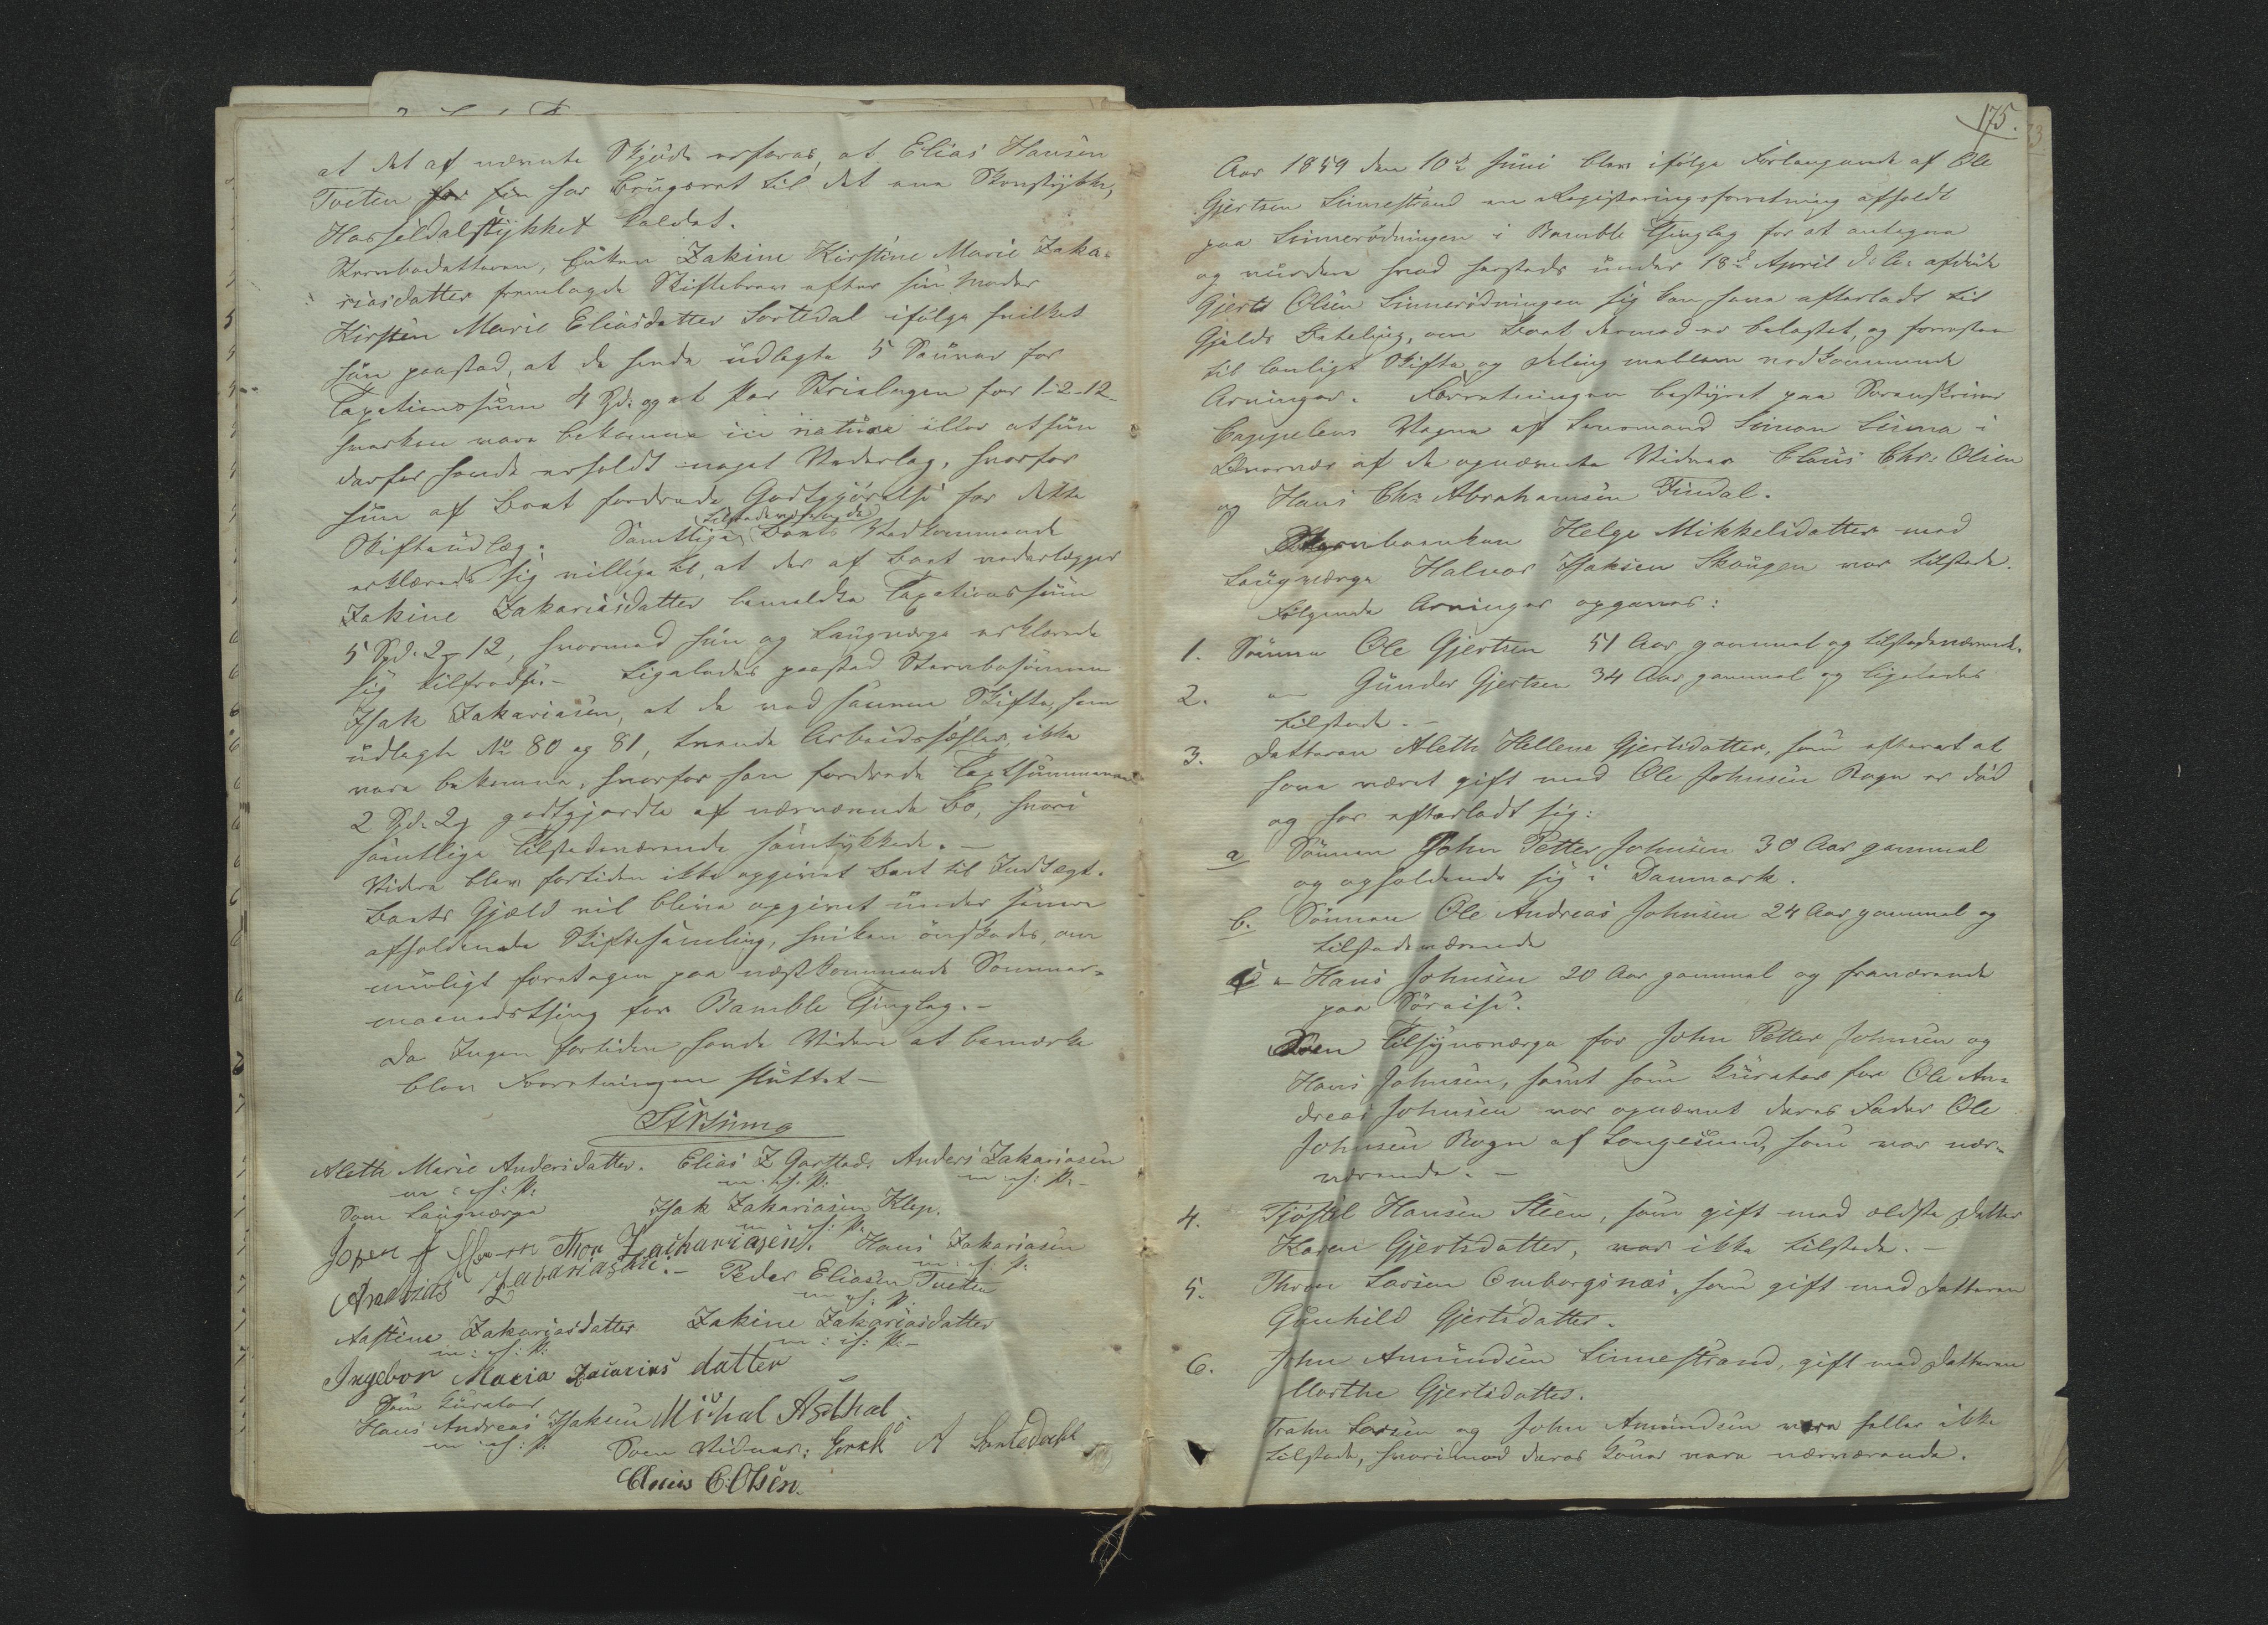 at det af nævnte Skjöde erfares, at Elias Hansen
Tveten har Brugsret til det ene Skovstykke,
Hasseldalstykket kaldet.
Sterbodatteren, Enken Zakine Kirstine Marie Zaka-
riasdatter fremlagde Skiftebrev efter sin Moder
Kirstin Marie Elisdatter Sortedal ifölge hvilket
hun paastod, at de hende udlagte 5 Sauer for
Taxationssum 4 Spd. og et Par Strielagen for 1-2-12
hverken vare bekomne in natura eller at hun
derfor havde erholdt noget Vederlag, hvorfor
hun af Boet fordrede Godtgjörelse for dette
tilstedeværende
Skifteudlæg. Samtlige Boets Vedkommende
erklærede sig villige til, at der af Boet vederlægges
Zakine Zakariasdatter bemeldte Taxationssum
5 Spd. 2 12, hvormed hun og Laugværge erklærede
sig tilfreds. – Ligeledes paastod Sterbosönnen
Isak Zakariasen, at de ved samme Skifte ham
udlagte No 80 og 81, tvende Arbeidshæster, ikke
vare bekomne, hvorfor han fordrede Taxtsummerne
2 Spd. 2 godtgjordte af nærværende Bo, hvori
samtlige Tilstedeværende samtykkede. –
Videre blev fortiden ikke opgivet Boet til Indtægt.
Boets Gjæld vil blive opgivet under senere
afholdende Skiftesamling, hvilken önskedes, om
muligt foretagen paa næstkommende Sommer-
maanedsthing for Bamble Thinglag. –
Da Ingen fortiden havde Videre at bemærke
blev Forretningen sluttet –
Aleth Marie Andersdatter. Elias Z Garstad Anders Zakariasen
m: f: P: m: f: P: m: f: P: –
Som Laugværge Isak Zakariasen Klep.
m f: P:
Thor Zachariasen. Hans Zakariasen
m: f: P:
Zakariasen. – Peder Eliasen Tveten
m: f: P:
Aastine Zakariasdatter Zakine Zakariasdatter
m: f: P: m: f: P: –
Ingebor Maria Zacarias datter
Som Curator
Hans Andreas Isaksen Michal
m: f: P: Som Vidner: A
Claus C. Olsen.
175.
Aar 1859 den 10de Juni blev ifölge Forlangende af Ole
Gjertsen Linnestrand en Registreringsforretning afholdt
paa Linnerödningen i Bamble Thinglag for at antegne
og vurdere hvad hersteds under 18de April d: A: afdöde
Gjert Olsen Linnerödningen sig kan have efterladt til
Gjelds Betaling, om Boet dermed er belastet, og forresten
til lovligt Skifte og Deling mellem vedkommende
Arvinger. Forretningen bestyret paa Sorenskriver
Cappelens Vegne af Lensmand Simon Linna i
Overvær af de opnævnte Vidner Claus Chr: Olsen
og Hans Chr: Abrahamsen Findal.
Sterboenken Helge Mikkelsdatter med
Laugværge Halvor Isaksen Skougen var tilstede.
Fölgende Arvinger opgaves:
1. Sönnen Ole Gjertsen 51 Aar gammel og tilstedeværende.
2. – Gunder Gjertsen 34 Aar gammel og ligeledes
tilstede. –
3. Datteren Aleth Hellene Gjertsdatter, som efterat at
have været gift med Ole Johnsen Rogn er död
og har efterladt sig:
a Sönnen John Petter Johnsen 30 Aar gammel
og opholdende sig i Danmark.
b. Sönnen Ole Andreas Johnsen 24 Aar gammel og
tilstedeværende
c – Hans Johnsen 20 Aar gammel og fraværende
paa Söreise.
Som Tilsynsværge for John Petter Johnsen og
Hans Johnsen, samt som Curator for Ole An-
dreas Johnsen var opnævnt deres Fader Ole
Johnsen Rogn af Langesund, som var nær-
værende. –
4. Tjöstel Hansen Steen, som gift med ældste Datter
Karen Gjertsdatter, var ikke tilstede. –
5. Thron Larsen Omborgsnæs, som gift med Datteren
Gunhild Gjertsdatter.
6. John Amundsen Linnestrand, gift med Datteren
Marthe Gjertsdatter.
Larsen og John Amundsen vare heller ikke
tilstede, hvorimod deres Koner vare nærværende.